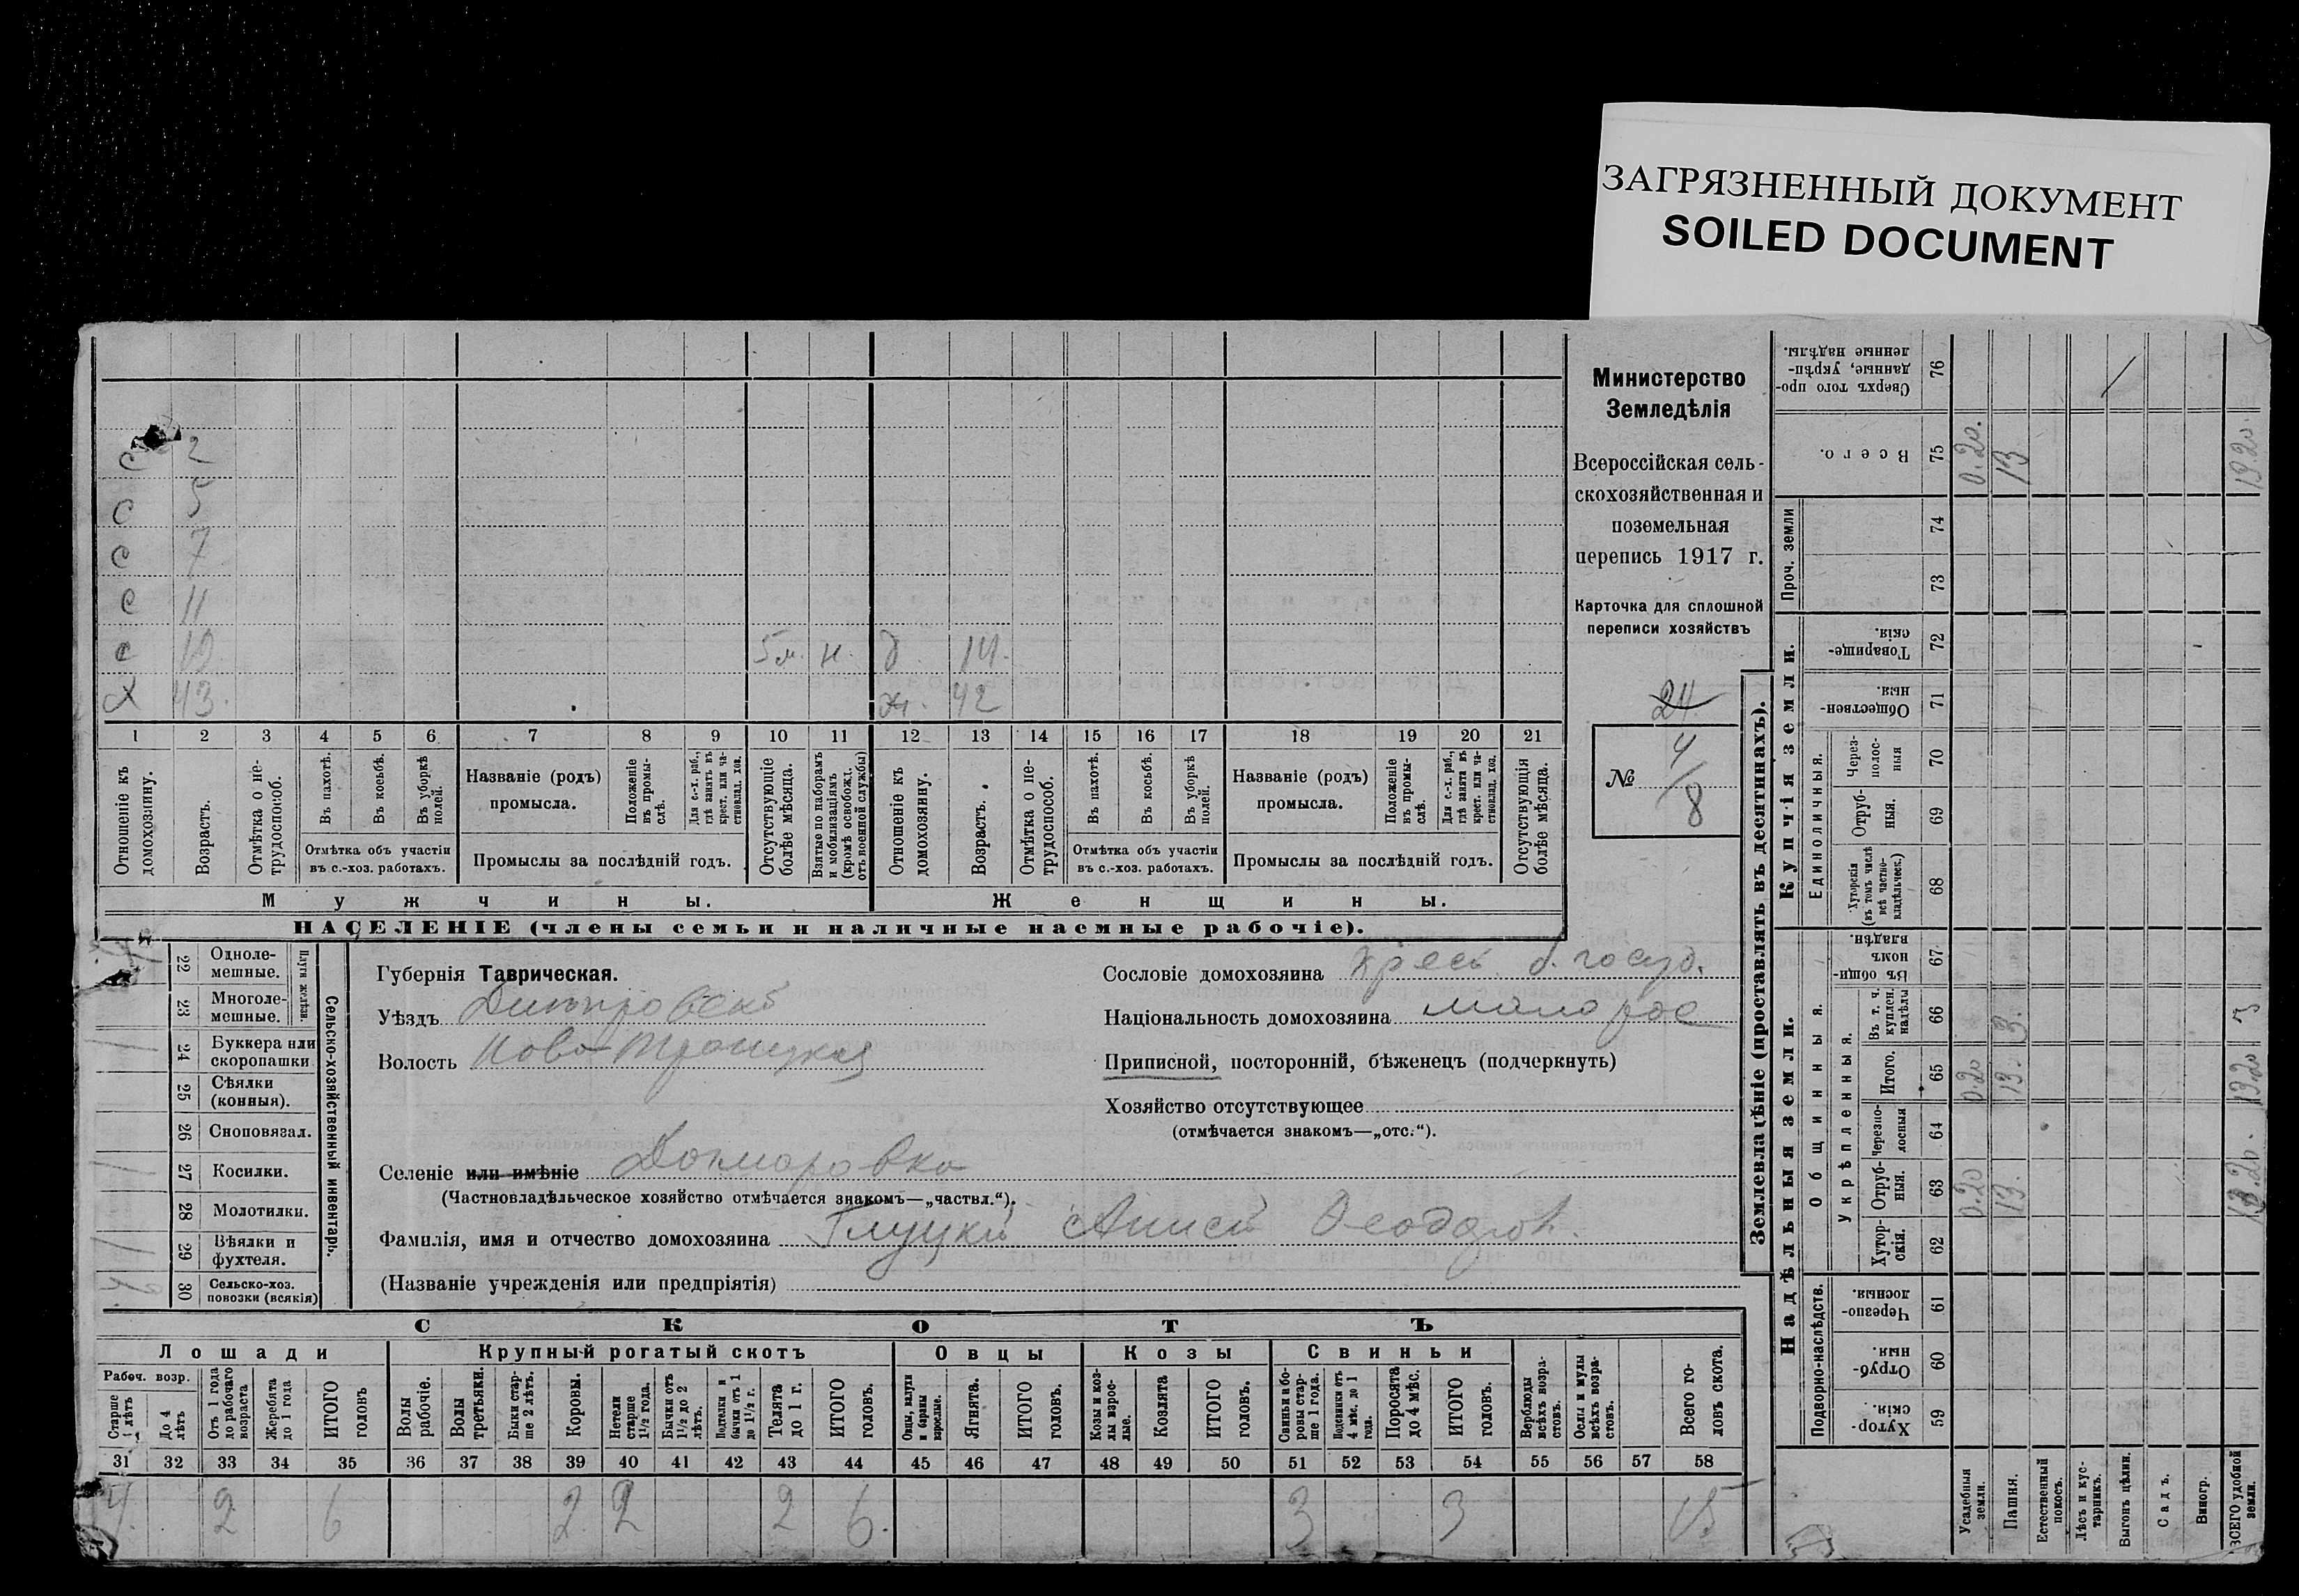 ЗАГРЯЗНЕННЫЙ ДОКУМЕНТ
SOILED DOCUMENT
с 2
с 5
с 7
с 11
с 19 5 м. н. д 14.
х 43. ж. 42
1 2 3 4 5 6 7 8 9 10 11 12 13 14 15 16 17 18 19 20 21
Отношеніе къ домохозяину.
Возрастъ.
Отмѣтка о не-трудоспособ.
Въ пахотѣ.
Въ косьбѣ.
Въ уборкѣ полей.
Отмѣтка объ участіи
въ с.-хоз. работахъ.
Названіе (родъ)
промысла.
Положеніе въ промы-слѣ.
Для с.-х. раб., гдѣ занятъ въ крест. или ча-стновлад. хоз.
Промыслы за послѣдній годъ.
Отсутствующіе болѣе мѣсяца.
Взятые по наборамъ и мобилизаціямъ (кромѣ освобожд. отъ военной службы)
Отношеніе къ домохозяину.
Возрастъ.
Отмѣтка о не-трудоспособ.
Въ пахотѣ.
Въ косьбѣ.
Въ уборкѣ полей.
Отмѣтка объ участіи
въ с.-хоз. работахъ.
Названіе (родъ)
промысла.
Положеніе въ промы-слѣ.
Для с.-х. раб., гдѣ занята въ крест. или ча-стновлад. хоз.
Промыслы за послѣдній годъ.
Отсутствующія болѣе мѣсяца.
Мужчины. Женщины.
НАСЕЛЕНІЕ (члены семьи и наличные наемные рабочіе).
Министерство
Земледѣлія
Всероссійская сель-
скохозяйственная и
поземельная
перепись 1917 г.
Карточка для сплошной
переписи хозяйствъ
24
№ 4/8
22 Одноле-мешные.
23 Многоле-мешные.
Плуги желѣзн.
24 Буккера или скоропашки
25 Сѣялки (конныя).
26 Сноповязал.
27 Косилки.
28 Молотилки.
29 Вѣялки и фухтеля.
30 Сельско-хоз. повозки (всякія)
Сельско-хозяйственный инвентарь.
Губернія Таврическая.
Уѣздъ Днѣпровскій
Волость Ново-Троицкая
Селеніе или имѣніе
(Частновладѣльческое хозяйство отмѣчается знакомъ—„частвл.“).
Фамилія, имя и отчество домохозяина Глуцкій Анисій Феодоров.
(Названіе учрежденія или предпріятія)
Сословіе домохозяина крест. б. госуд.
Національность домохозяина малорос
Приписной, посторонній, бѣженецъ (подчеркнуть)
Хозяйство отсутствующее
(отмѣчается знакомъ—„отс.“).
СКОТЪ
Лошади Крупный рогатый скотъ Овцы Козы Свиньи
Рабоч. возр.
Старше 4 лѣтъ
До 4 лѣтъ
Отъ 1 года до рабочаго возраста
Жеребята до 1 года
ИТОГО головъ
Волы рабочіе.
Волы третьяки.
Быки стар-ше 2 лѣтъ.
Коровы.
Нетели старше 1½ года.
Бычки отъ 1½ до 2 лѣтъ.
Подтелки и бычки отъ 1 до 1½ г.
Телята до 1 г.
ИТОГО головъ.
Овцы, валухи и бараны взрослые.
Ягнята.
ИТОГО головъ.
Козы и коз-лы взрос-лые.
Козлята
ИТОГО головъ.
Свиньи и бо-ровы стар-ше 1 года.
Подсвинки отъ 4 мѣс. до 1 года.
Поросята до 4 мѣс.
ИТОГО головъ.
Верблюды всѣхъ возра-стовъ.
Ослы и мулы всѣхъ возра-стовъ.
Всего го-ловъ скота.
31 32 33 34 35 36 37 38 39 40 41 42 43 44 45 46 47 48 49 50 51 52 53 54 55 56 57 58
4. 2 6 2 2 2 6. 3 3 15
Землевладѣніе (проставлять въ десятинахъ).
Надѣльныя земли. Купчія земли.
Подворно-наслѣдств.
Общинныя.
Укрѣпленныя.
Единоличныя.
Проч. земли
59 Хутор-скія.
60 Отруб-ныя.
61 Черезпо-лосныя.
62 Хутор-скія.
63 Отруб-ныя. 0.20 13. 13.20.
64 Черезпо-лосныя
65 Итого. 0.20 13. 13.20
66 Въ т. ч. куплен. надѣлы 3. 3
67 Въ общин-номъ владѣн.
68 Хуторскія (въ томъ числѣ всѣ частно-владѣльческ.)
69 Отруб-ныя.
70 Через-полос-ныя
71 Обществен-ныя.
72 Товарище-скія.
73
74
75 Всего. 0.20. 13 13.20.
76 Сверхъ того про-данные, укрѣп-ленные надѣлы.
Усадебныя земли.
Пашня.
Естественный покосъ.
Лѣсъ и кус-тарникъ.
Выгонъ цѣлин.
Садъ.
Виногр.
ВСЕГО удобной земли.